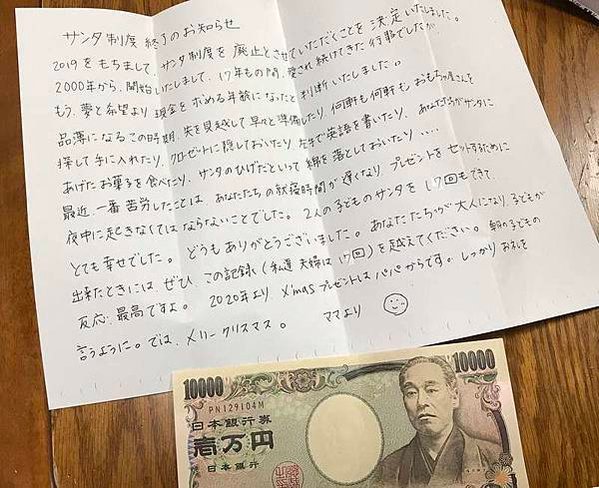 サンタ制度 終了のお知らせ
2019をもちまして、サンタ制度を廃止とさせていただくことを決定いたしました。
2000年から、開始いたしまして、17年もの間、愛され続けてきた行事でしたが
もう、夢と希望より現金を求める年齢になったと判断いたしました。
品薄になるこの時期、先を見越して早々と準備したり、何軒も何軒もおもちゃ屋さんを
探して手に入れたり、クローゼットに隠しておいたり、左手で英語を書いたり、あなたたちがサンタに
あげたお菓子を食べたり、サンタのひげだといって綿を落としておいたり....
最近、一番苦労したことは、あなたたちの就寝時間が遅くなり、プレゼントをセットするために
夜中に起きなくてはならないことでした。2人の子どものサンタを17回もできて、
とても幸せでした。どうもありがとうございました。あなたたちが大人になり、子どもが
出来たときには、ぜひ、この記録(私達夫婦は17回)を越えてください。朝の子どもの
反応、最高ですよ。2020年より、X'masプレゼントはパパからです。しっかりお礼を
言うように。では、メリークリスマス。 ママより
10000 10000
PN129104M
日本銀行券
壱万円
日本銀行